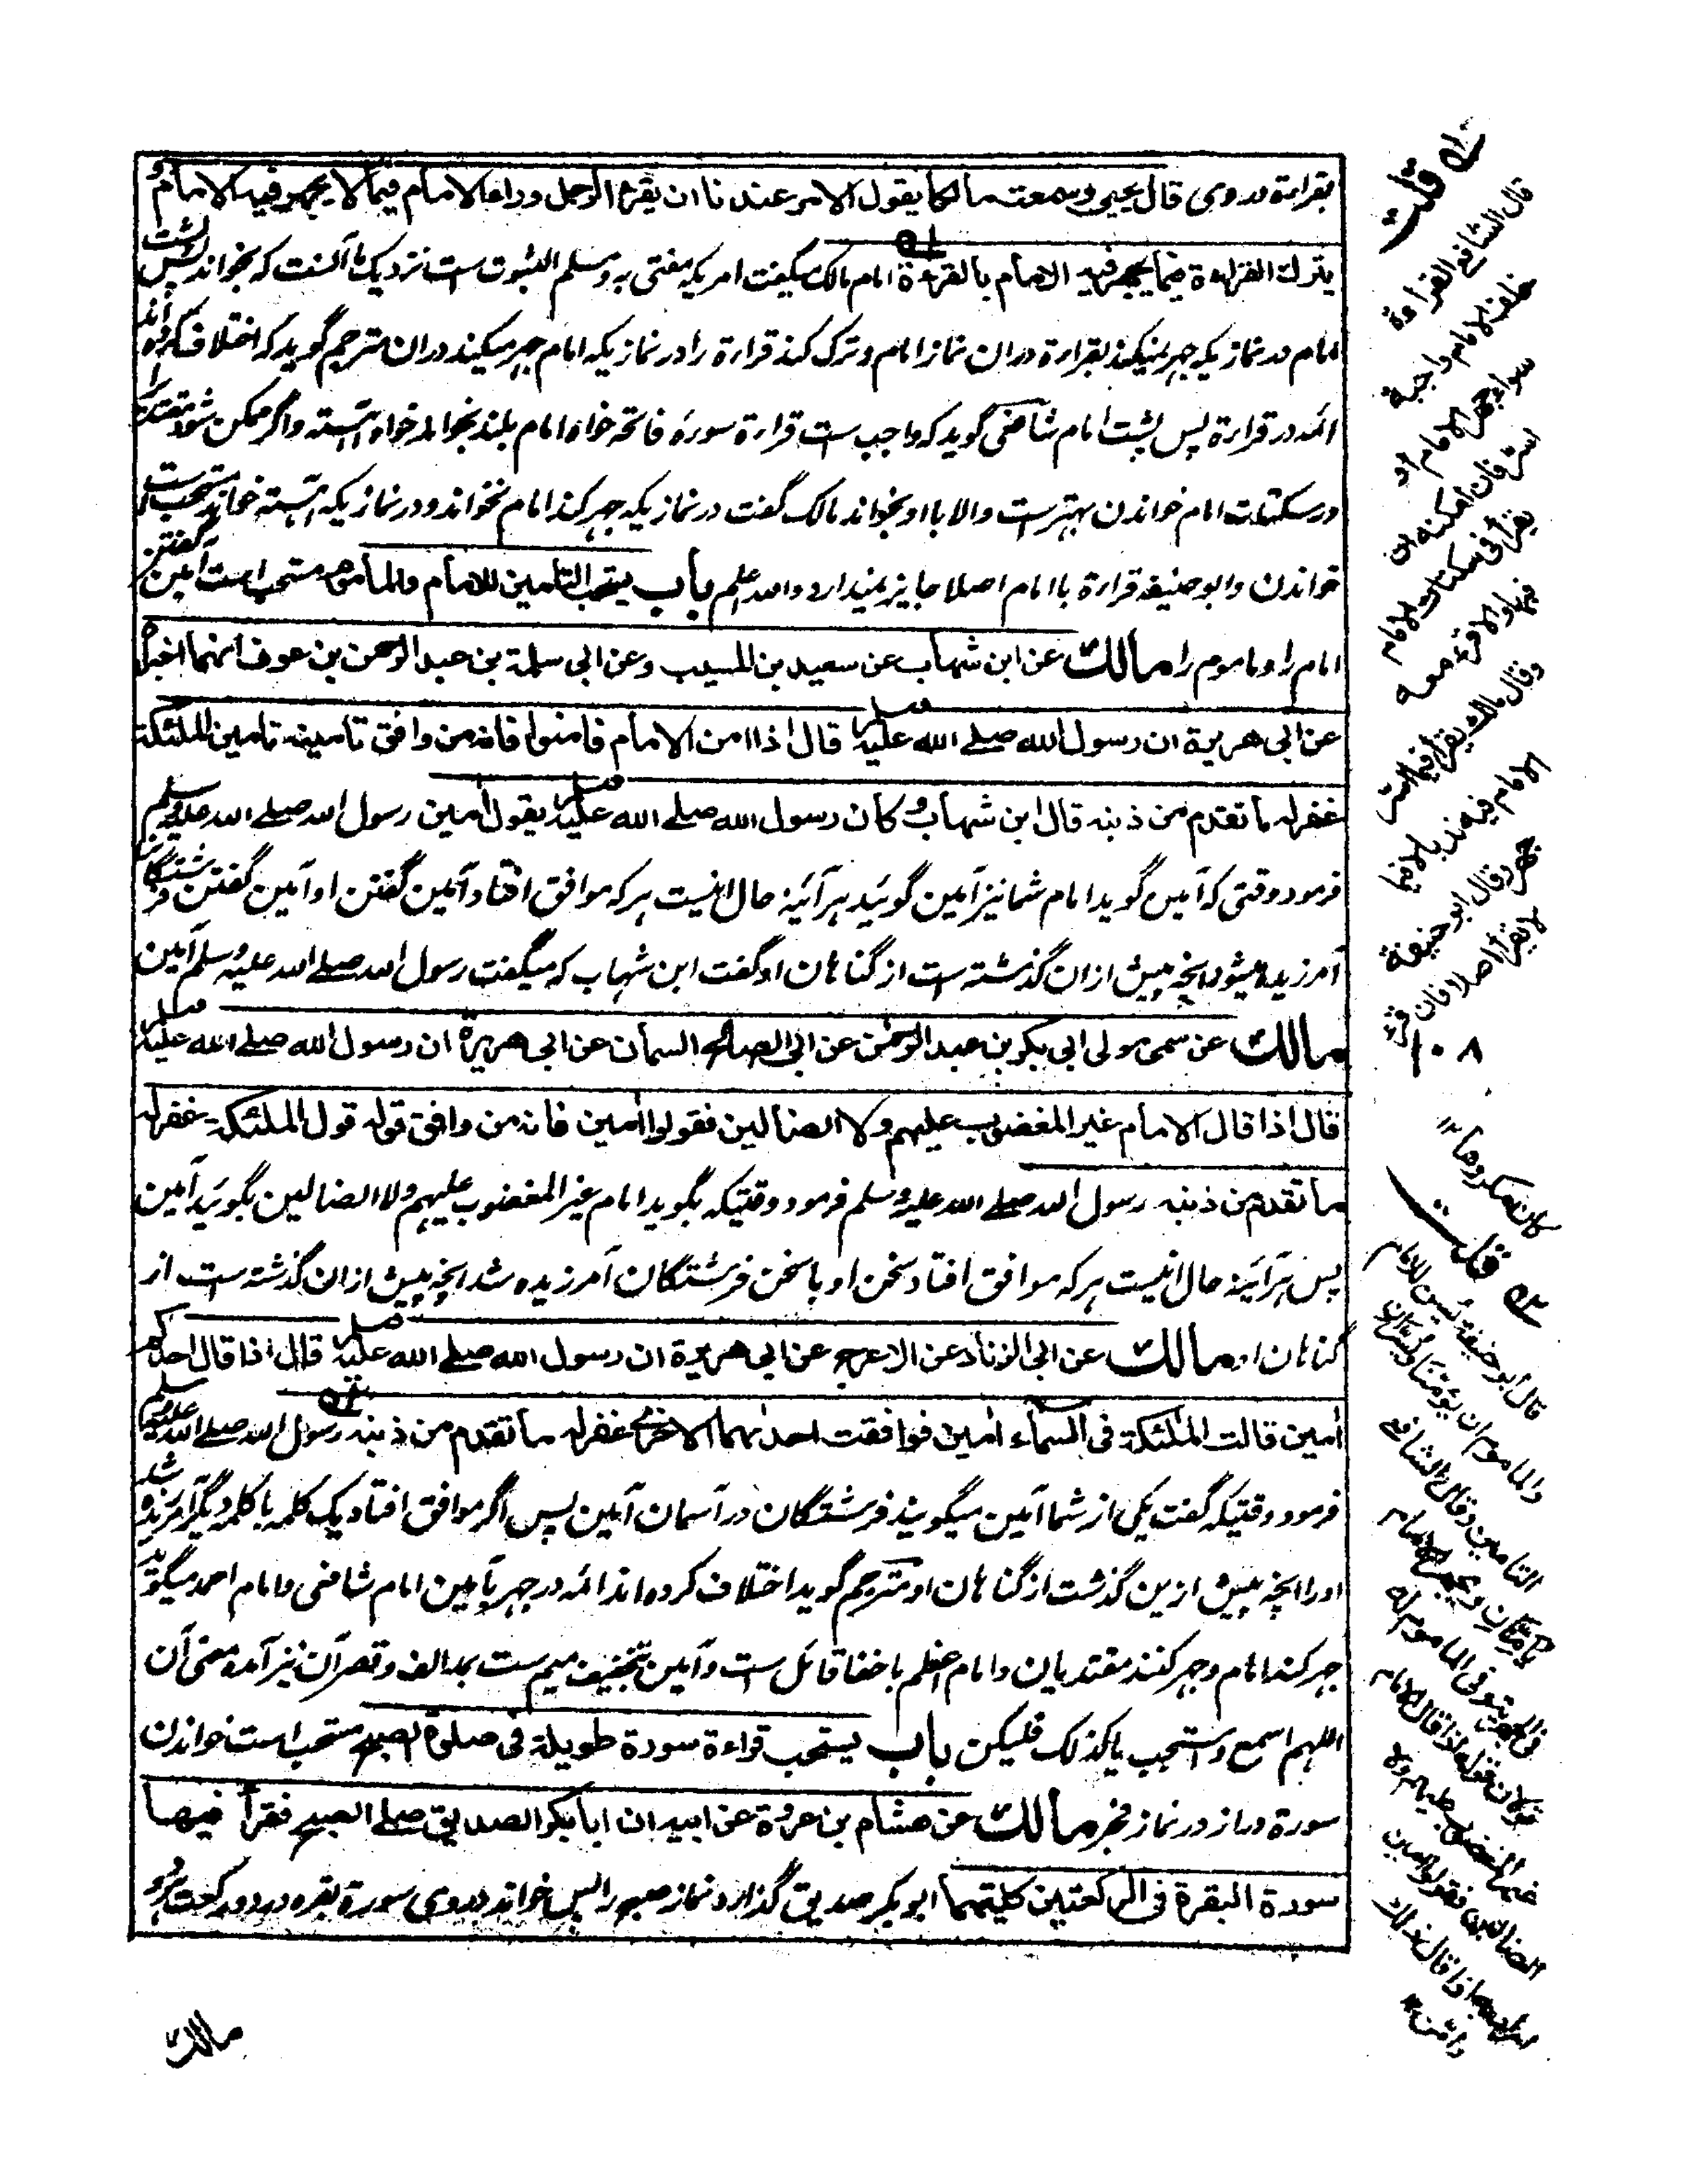 بقراءة در وی قال یحیی وسمعت مالکا یقول الامر عندنا ان یقرء الرجل وراء الامام فیما لا یجهر فیه الامام و
یترك القراءة فیما یجهر فیه الامام بالقراءة امام مالک میگفت امریکه مفتی به ومسلم الثبوت ست نزدیک ما آنست که بخواند پس پشت
امام در نمازیکه جهر نمیکند بقراءة دران نماز امام وترک کند قراءة را در نمازیکه امام جهر میکند دران مترجم گوید که اختلاف کرده اند
ائمه در قراءة پس پشت امام شافعی گوید که واجب ست قراءة سورهٔ فاتحه خواه امام بلند بخواند خواه آهسته واگر ممکن شود مقتدی را
در سکتات امام خواندن بهترست والا با او بخواند مالک گفت در نمازیکه جهر کند امام نخواند ودر نمازیکه آهسته خواند مستحب ست
خواندن وابو حنیفه قراءة با امام اصلا جایز نمیدارد والله اعلم باب یستحب التامین للامام والماموم مستحب است آمین گفتن
امام را وماموم را مالك عن ابن شهاب عن سعید بن المسیب وعن ابی سلمة بن عبد الرحمن بن عوف انهما اخبراه
عن ابی هریرة ان رسول الله صلے الله علیه وسلم قال اذا امن الامام فامنوا فانه من وافق تامینه تامین الملئكة
غفر له ما تقدم من ذنبه قال ابن شهاب وكان رسول الله صلے الله علیه وسلم یقول آمین رسول الله صلے الله علیه وسلم
فرمود وقتی که آمین گوید امام شما نیز آمین گوئید هر آئینه حال اینست هر که موافق افتاد آمین گفتن او آمین گفتن فرشتگان
آمرزیده میشود آنچه پیش ازان گذشته ست از گناهان او گفت ابن شهاب که میگفت رسول الله صلے الله علیه وسلم آمین
مالك عن سمی مولی ابی بکر بن عبد الرحمن عن ابی الصالح السمان عن ابی هریرة ان رسول الله صلے الله علیه وسلم
قال اذا قال الامام غیر المغضوب علیهم ولا الضالین فقولوا آمین فانه من وافق قوله قول الملئكة غفر له
ما تقدم من ذنبه رسول الله صلے الله علیه وسلم فرمود وقتیکه بگوید امام غیر المغضوب علیهم ولا الضالین بگوئید آمین
پس هر آئینه حال اینست هر که موافق افتاد سخن او با سخن فرشتگان آمرزیده شد آنچه پیش ازان گذشته ست از
گناهان او مالك عن ابی الزناد عن الاعرج عن ابی هریرة ان رسول الله صلے الله علیه وسلم قال اذا قال احدكم
آمین قالت الملئكة فی السماء آمین فوافقت احدٰهما الاخرٰی غفر له ما تقدم من ذنبه رسول الله صلے الله علیه وسلم
فرمود وقتیکه گفت یکی از شما آمین میگویند فرشتگان در آسمان آمین پس اگر موافق افتاد یک کلمه با کلمه دیگر آمرزیده شد
او را آنچه پیش ازین گذشت از گناهان او مترجم گوید اختلاف کرده اند ائمه در جهر بآمین امام شافعی وامام احمد میگوید
جهر کند امام وجهر کنند مقتدیان وامام اعظم باخفا قائل ست وآمین بتخفیف میم ست بمد الف وقصر آن نیز آمده معنی آن
اللهم اسمع واستجب یا کذلک فلیکن باب یستحب قراءة سورة طویلة فی صلوة الصبح مستحب است خواندن
سورة دراز در نماز فجر مالك عن هشام بن عروة عن ابیه ان ابا بکر الصدیق صلے الصبح فقرأ فیها
سورة البقرة فی الركعتین کلیتهما ابو بکر صدیق گذارد نماز صبح را پس خواند در وی سورة بقره در دو رکعت هر دو
مالك
قلت
قال الشافعی القراءة
خلف الامام واجبة
سواء جهر الامام او
اسر فان امكنه ان
یقرأ فی سكتات الامام
فبها والا قرء معه
وقال مالك یقرأ فیما اسر
الامام فیه ندبا لا فیما
جهر وقال ابو حنیفة
لا یقرأ اصلا فان قرء
۱۰۸
كان مكروها
قلت
قال ابو حنیفة یسن للامام
والماموم ان یؤمنا ویسران
التامین وقال الشافعی
یؤمنان ویجهر الامام
الضالین فقولوا آمین